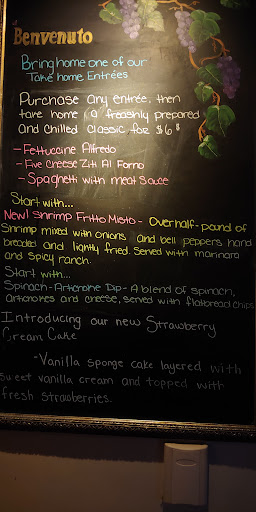 Benvenuto
Bring home one of our
Take home Entrées
Purchase any entrée, then
take home a freashly prepared
and chilled classic for $6$
- Fettuccine Alfredo
- Five Cheese Ziti Al Forno
- Spaghetti with meat sauce
Start with...
New! Shrimp Fritto Misto - Over half-pound of
Shrimp mixed with onions and bell peppers hand
breaded and lightly fried. Served with marinara
and spicy ranch.
Start with...
Spinach-Artichoke Dip - A blend of spinach,
artichokes and cheese, served with flatbread chips
Introducing our new Strawberry
Cream Cake
-Vanilla sponge cake layered with
sweet vanilla cream and topped with
fresh strawberries.